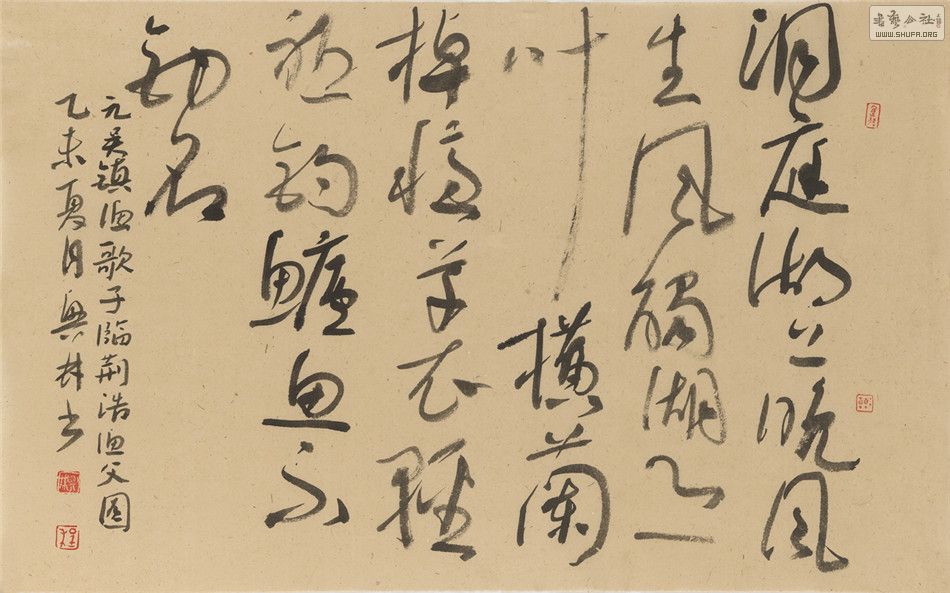 洞庭湖上晚風
生風觸湖心一
叶橫蘭
棹穩草衣輕
祗釣鱸魚不
釣名
元吴鎮漁歌子臨荊浩漁父圖
乙未夏月興林书
書藝公社
WWW.SHUFA.ORG